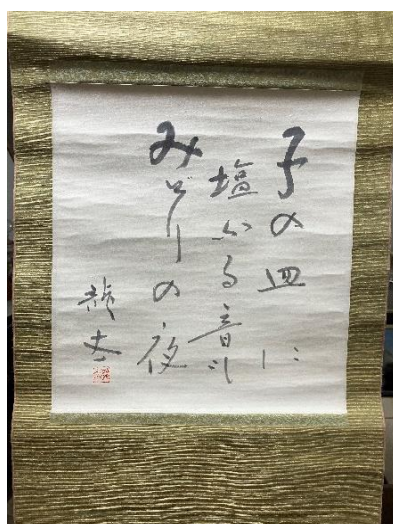 子の皿に
塩ふる音も
みどりの夜
龍太